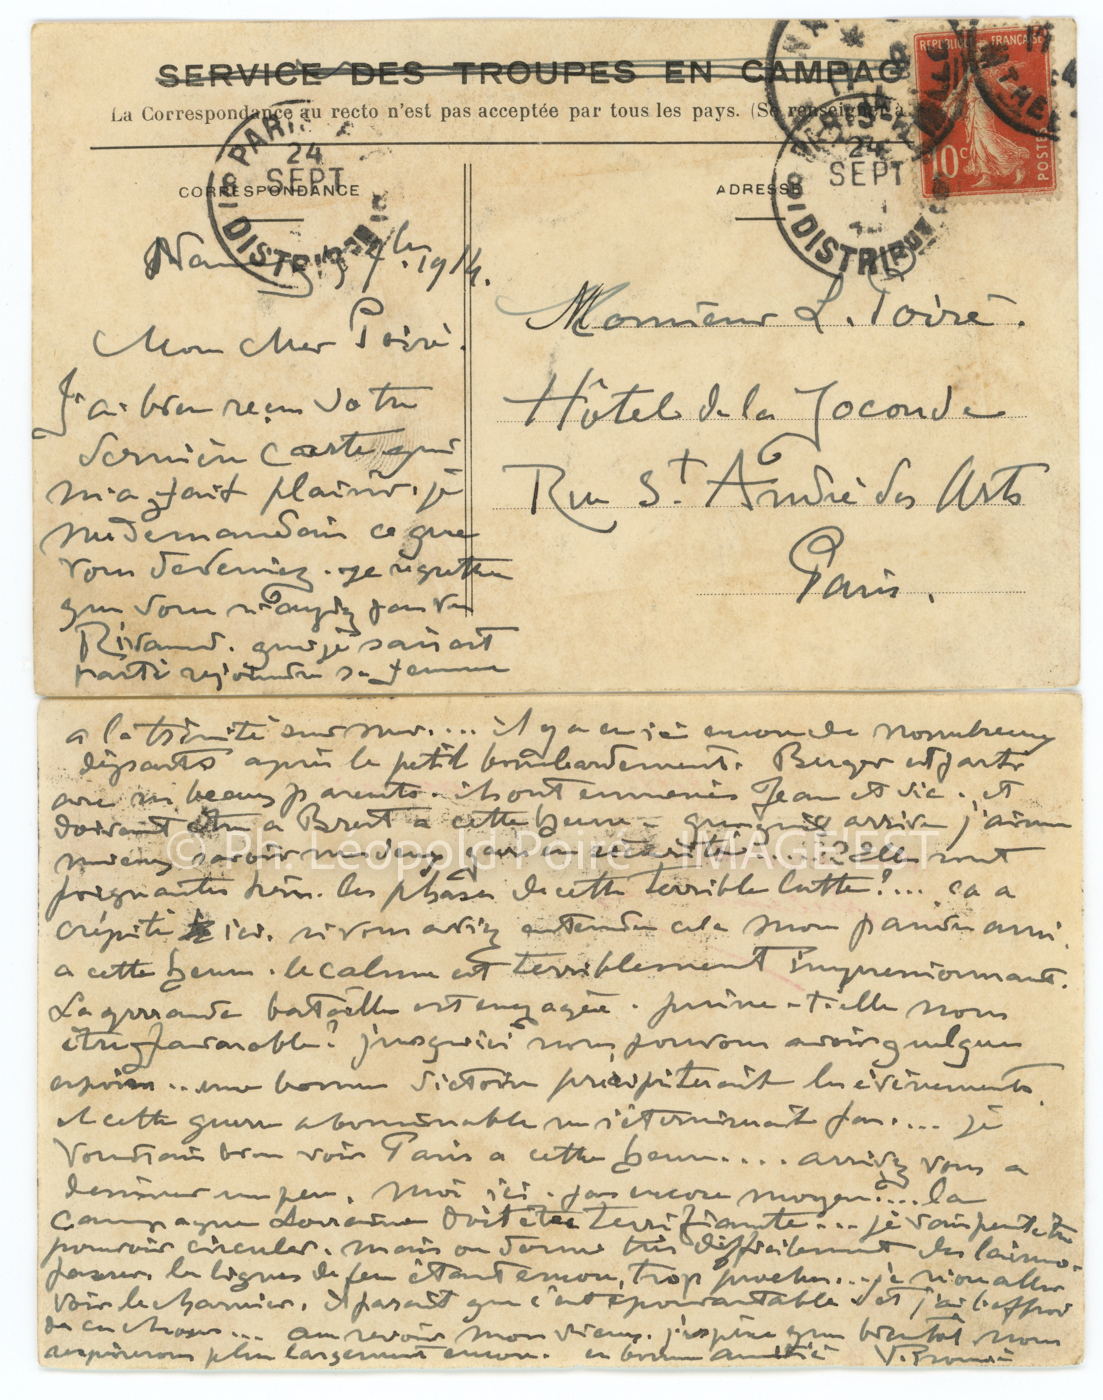 SERVICE DES TROUPES EN CAMPAG
La Correspondance au recto n'est pas acceptée par tous les pays. (Se renseigner à
REPUBLIQUE FRANÇAISE
10 c
POSTES
PARIS
24
SEPT
DISTRIBUTION
24
SEPT
DISTRIBUTION
CORRESPONDANCE
ADRESSE
7bre 1914.
Mon cher Poiré.
J'ai bien reçu votre
dernière carte qui
m'a fait plaisir. je
me demandais ce que
vous deveniez. je regrette
que vous n'ayez pas vu
Rivaud. que je sais est
parti rejoindre sa femme
Monsieur L. Poiré.
Hôtel de la Joconde
Rue St André des Arts
Paris.
a la trinité sur mer.... il y a eu ici encore de nombreux
départs après le petit bombardement. Berger est parti
avec ses beaux parents. ils ont emmenés Jean et Vic. et
doivent être a Brest a cette heure - quoiqu'il arrive j'aime
mieux savoir mes deux gars en sécurité.... Elles sont
poignantes hein. les phases de cette terrible lutte!... ca a
crépité ici. si vous aviez entendu cela mon pauvre ami.
a cette heure. le calme est terriblement impressionnant.
La grande bataille est engagée. puisse-t-elle nous
être favorable! jusqu'ici nous pouvons avoir quelques
espoirs.. une bonne victoire précipiterait les événements.
et cette guerre abominable ne s'éterniserait pas.... je
voudrais bien voir Paris a cette heure.... arrivez vous a
dessiner un peu. Moi ici. pas encore moyen!... la
Campagne Lorraine doit être terrifiante... je vais peut être
pouvoir circuler. mais on donne très difficilement des laissez-
passer. les lignes de feu étant encore trop proches... je
voir le charnier. il parait que c'est épouvantable et j'ai l'effroi
de ces choses... au revoir mon vieux. j'espère que bientôt nous
respirerons plus largement encore. en bonne amitié V. Prouvé
© Ph. Léopold Poiré - IMAGE'EST